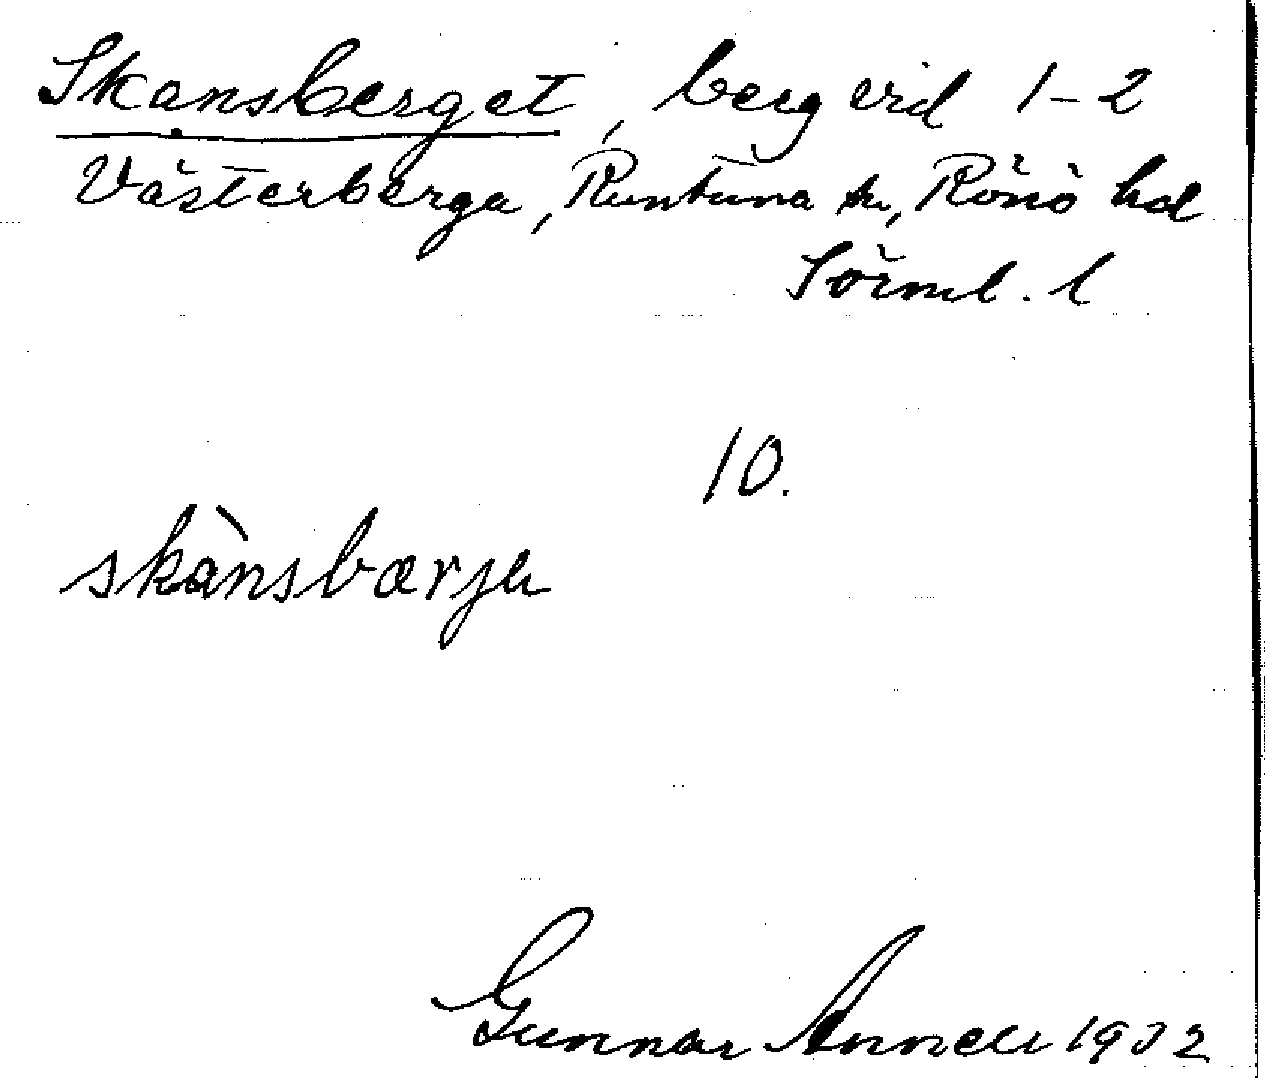 Skansberget, berg vid 1-2
Västerberga, Runtuna sn, Rönö hd
Sörml. l
10.
skànsbærje
Gunnar Annell 1932